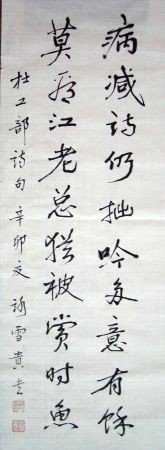 病减诗仍拙吟多意有馀
莫看江老总犹被赏时鱼
杜工部诗句 辛卯夏 雪贵书